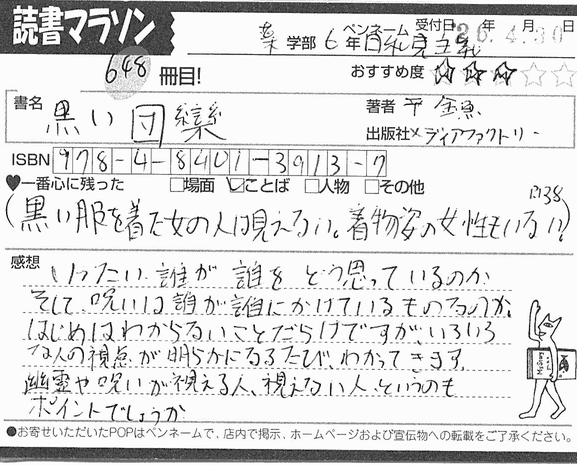 読書マラソン
648 冊目!
薬 学部 6年 ペンネーム 受付日 '26年4月30日
おすすめ度 ★★★☆☆
書名 黒い団欒
著者 平 金魚
出版社 メディアファクトリー
ISBN 978-4-8401-3913-7
♥一番心に残った □場面 ☑ことば □人物 □その他
(黒い服を着た女の人は見えない。着物姿の女性もいない) P138
感想 いったい、誰が誰をどう思っているのか
そして、呪いは誰が誰にかけているものなのか。
はじめはわからないことだらけですが、いろいろ
な人の視点が明らかになるたび、わかってきます。
幽霊や呪いが視える人、視えない人、というのも
ポイントでしょうか
●お寄せいただいたPOPはペンネームで、店内で掲示、ホームページおよび宣伝物への転載をご了承ください。